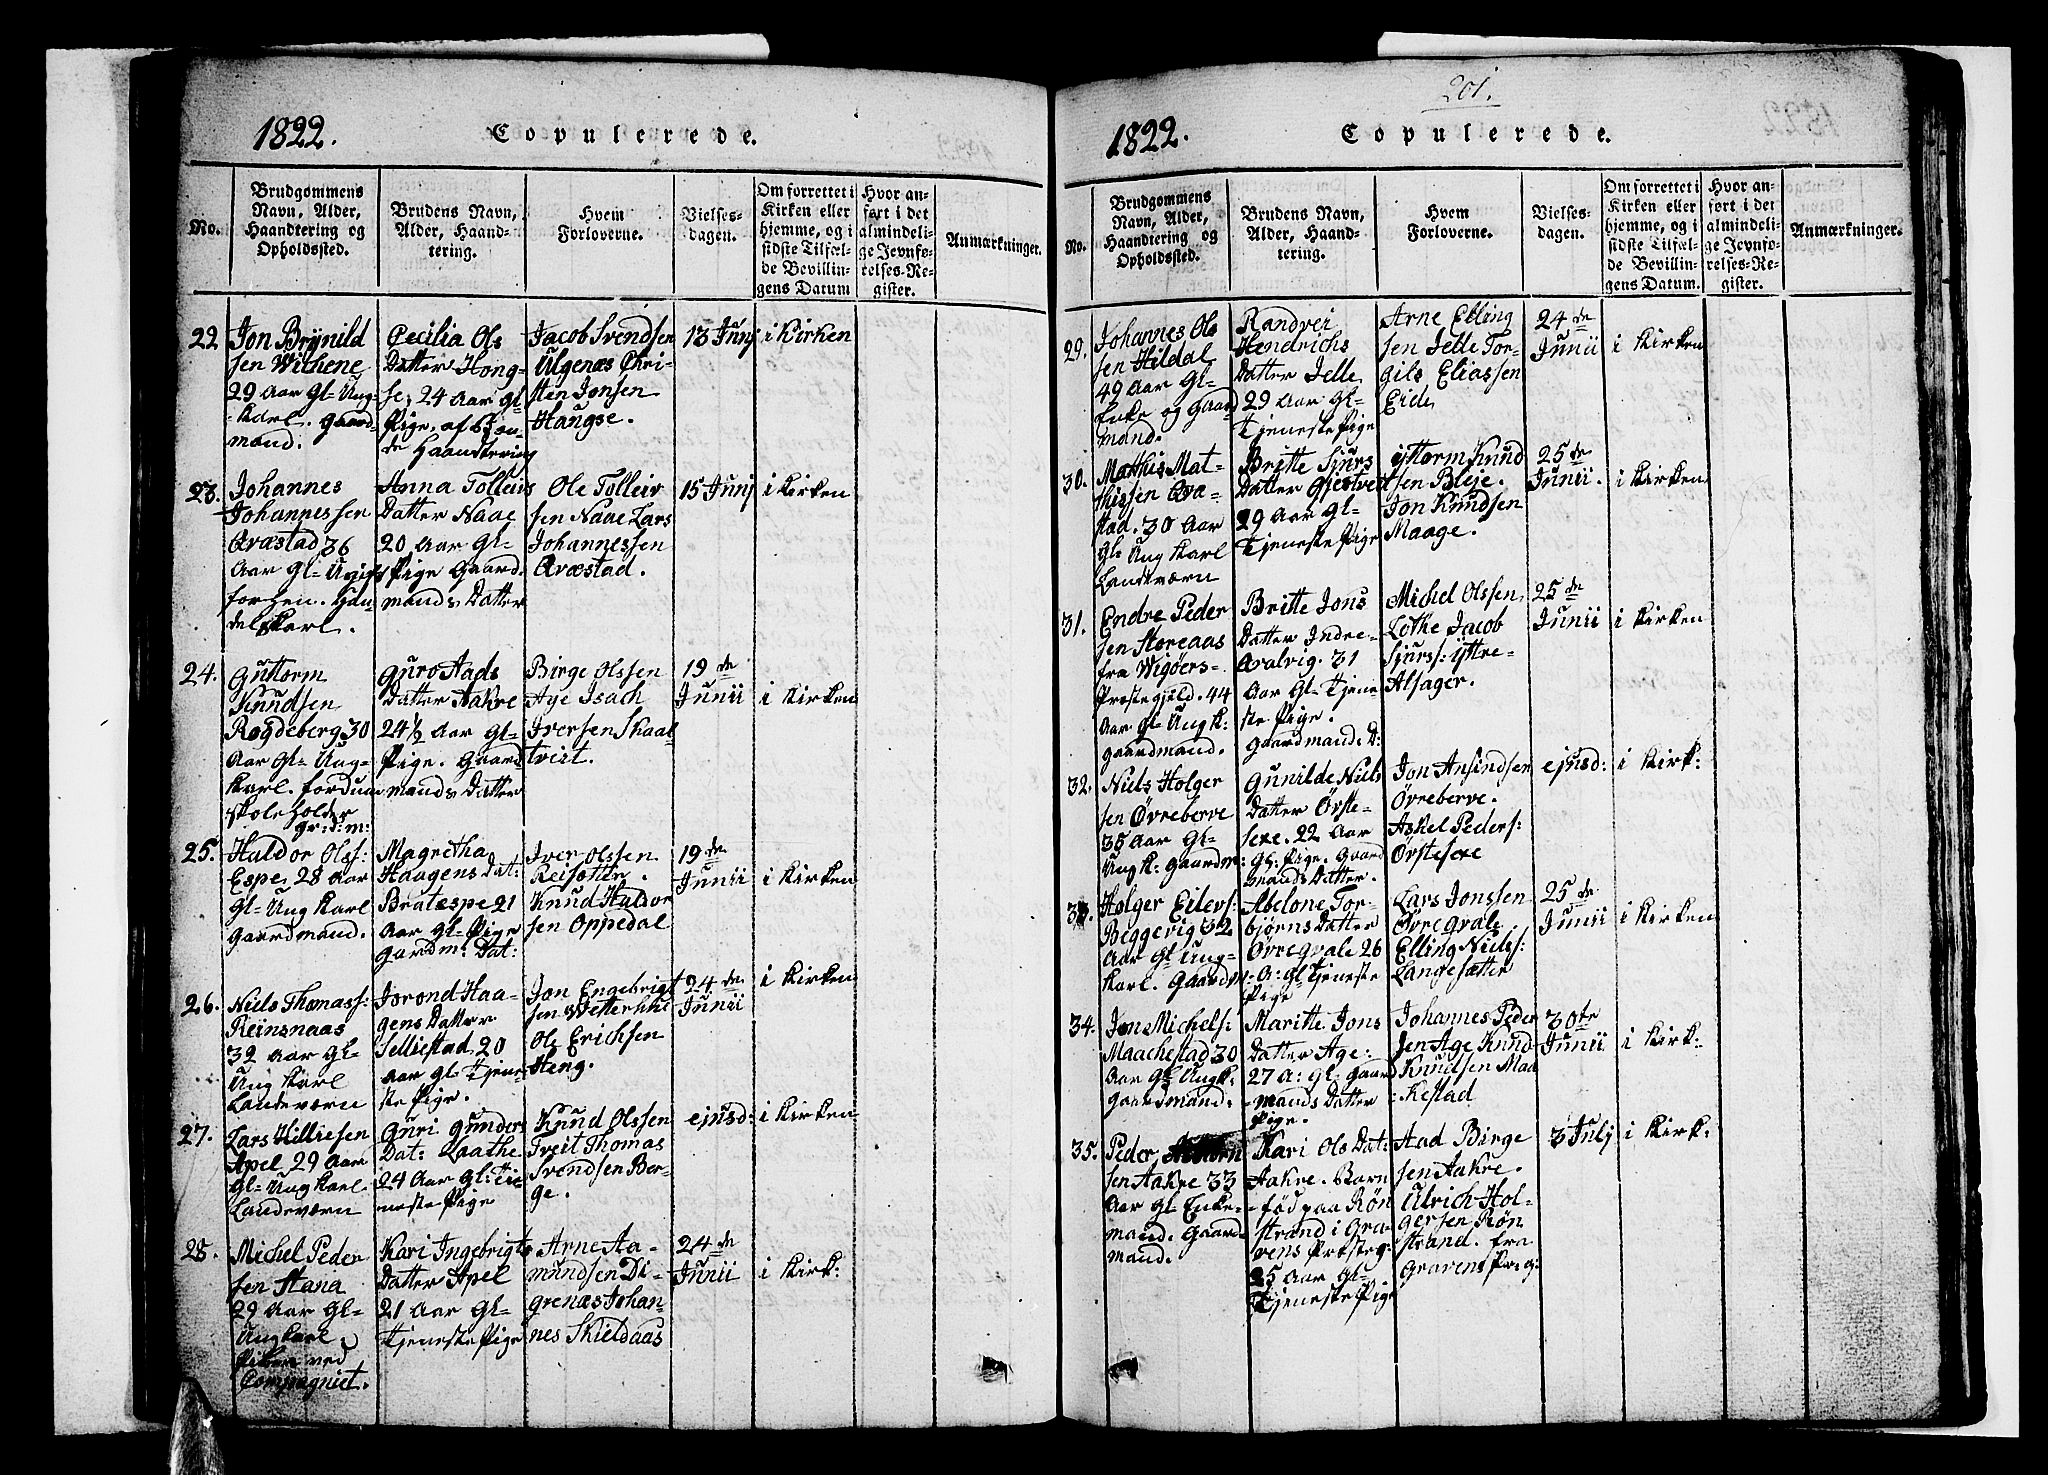 1822.
Copulerede.
No.
Brudgommens
Navn, Alder,
Haandtering og
Opholdssted.
Brudens Navn,
Alder, Haand-
tering.
Hvem
Forloverne.
Vielses-
dagen.
Om forrettet i
Kirken eller
hjemme, og i
sidste Tilfæl-
de Bevillin-
gens Datum
Hvor an-
ført i det
almindeli-
ge Jevnfø-
relses-Re-
gister.
Anmærkninger.
22
Jon Brynild
sen Withene
29 Aar Gl- Ung-
karl. Gaard-
mand.
Cecilia Ols
Datter Hong-
se, 24 Aar Gl-
Pige, af Bøn-
de Haandtering
Jacob Svendsen
Ulgenæs Chri-
sten Jonsen
Haugse.
13 Junj
i Kirken
23.
Johannes
Johannessen
Qvæstad 36
Aar Gl- Ugift
forhen. Han-
delskarl.
Anna Tolleivs
Datter Naae
20 Aar Gl-
Pige Gaard-
mands Datter
Ole Tolleiv
sen Naae Lars
Johannessen
Qvæstad.
15 Junj
i Kirken
24.
Guttorm
Knudsen
Rogdeberg 30
Aar Gl- Ung-
karl. fordum
Skoleholder
gr:d:m:
Guro Aads
Datter Aakre
24½ Aar Gl-
Pige. Gaard
mands Datter
Birge Olssen
Age Isach
Iversen Skaal
tveit.
19 de
Junii
i Kirken
25.
Haldor Olss:
Espe, 28 Aar
Gl- Ung Karl
Gaardmand.
Magretha
Haagens Dat:
Bratespe 21
Aar Gl- Pige
Gaardm: Dat:
Iver Olssen
Reisæter.
Knud Haldor
sen Oppedal
19 de
Junii
i Kirken
26.
Niels Thomass:
Reinsnaas
32 Aar Gl-
Ung Karl
Landeværn
Jorond Haa-
gens Datter
Selliestad 20
Aar Gl- Tjene-
ste Pige.
Jon Engebrigt
sen
Ole Erichsen
Heng.
24 de
Junii
i Kirken
27.
Lars Hilliesen
Apel 29 Aar
Gl- Ung Karl
Landeværn
Guri Gunders
Dat: Laathe
24 Aar Gl:
neste Pige
Knud Olssen
Treit Thomas
Svendsen Ber-
ge.
ejusd:
i Kirken
28.
Michel Peder
sen Stana
29 Aar Gl-
Ung karl.
ved
Compagniet.
Kari Ingebrigts
Datter Apel
21 Aar Gl-
Tjeneste Pige
Arne Aa-
mundsen Di-
grenæs Johan-
nes Skieldaas
24 de
Junii
i Kirk:
201.
1822.
Copulerede.
No.
Brudgommens
Navn, Alder,
Haandtering og
Opholdssted.
Brudens Navn,
Alder, Haand-
tering.
Hvem
Forloverne.
Vielses-
dagen.
Om forrettet i
Kirken eller
hjemme, og i
sidste Tilfæl-
de Bevillin-
gens Datum.
Hvor an-
ført i det
almindeli-
ge Jevnfø-
relses-Re-
gister.
Anmærkninger.
29.
Johannes Ols
sen Hildal
49 Aar Gl-
Enke og Gaard
mand.
Randvei
Hendrichs
Datter Jelle
29 Aar Gl-
Tjeneste Pige
Arne Elling
sen Jelle Tor-
gils Eliassen
Eide
24 de
Junii
i Kirken
30.
Mathis Mat-
thissen Qvæ-
stad. 30 Aar
Gl- Ung Karl
Landeværn
Britte Sjurs
Datter Gjestveit
29 Aar Gl-
Tjeneste Pige
Gittorm Knud
sen Bleje.
Jon Knudsen
Maage.
25 de
Junii.
i Kirken
31.
Endre Peder
sen Storeaas
fra Wigøers-
Præstegjeld. 44
Aar Gl- Ung K:
Gaardmand.
Britte Jons
Datter Indre-
Qvalvig. 31
Aar Gl- Tjene
ste Pige.
Gaardmands D:
Michel Olssen
Lothe Jacob
Sjurs: Yttre-
Alsager.
25 de
Junii
i Kirken
32.
Niels Holger
sen Øvreberve
35 Aar Gl-
Ung K: Gaardm:
Gunilde Niels
Datter Øvste-
sexe. 22 Aar
Gl: Pige. Gaard
mands Datter.
Jon Ansindsen
Øvreberve.
Askel Peders:
Øvstesexe
ejusd:
i Kirk:
33.
Holger Eilers:
Beggevig 32
Aar Gl Ung-
karl. Gaardm:
Abelone Tor-
bjørns Datter
Øvregvale 26
A: Gl Tjeneste
Pige
Lars Jonssen
Øvregvale
Elling Niels:
Langesætter
25 de
Junii
i Kirken
34.
Jon Michels:
Maachestad 30
Aar Gl Ungk.
Gaardmand.
Maritte Jons
Datter Age:
27 A: Gl- Gaard
mands Datter
Pige.
Johannes Peder
sen Age Knud
Knudsen Maa
kestad
30te
Junii
i Kirk:
35.
Peder
sen Aakre 33
Aar Gl- Enke-
mand. Gaard
mand.
Kari Ols Dat:
Aakre. Barn
fød paa Røn
strand i Gra-
vens Præsteg:
25 Aar Gl-
Tjeneste Pige
Aad Birge
sen Aakre.
Ulrich Hol-
gersen Røn
strand. fra
Gravens Præg:
3 Julj
i Kirk: